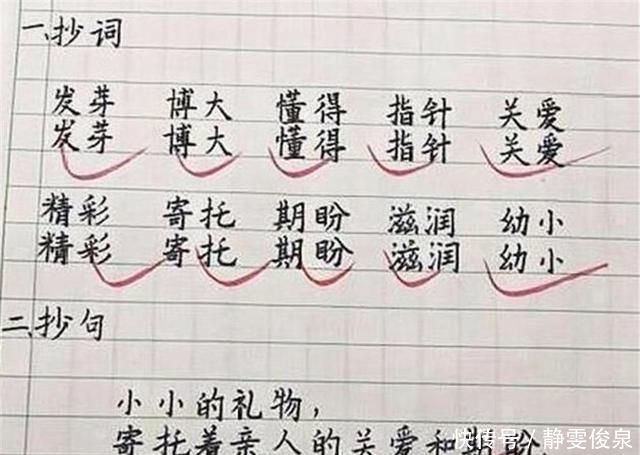 一、抄词
发芽 博大 懂得 指针 关爱
发芽 博大 懂得 指针 关爱
精彩 寄托 期盼 滋润 幼小
精彩 寄托 期盼 滋润 幼小
二、抄句
小小的礼物，
寄托着亲人的关爱和期盼
快传号/静雯俊泉